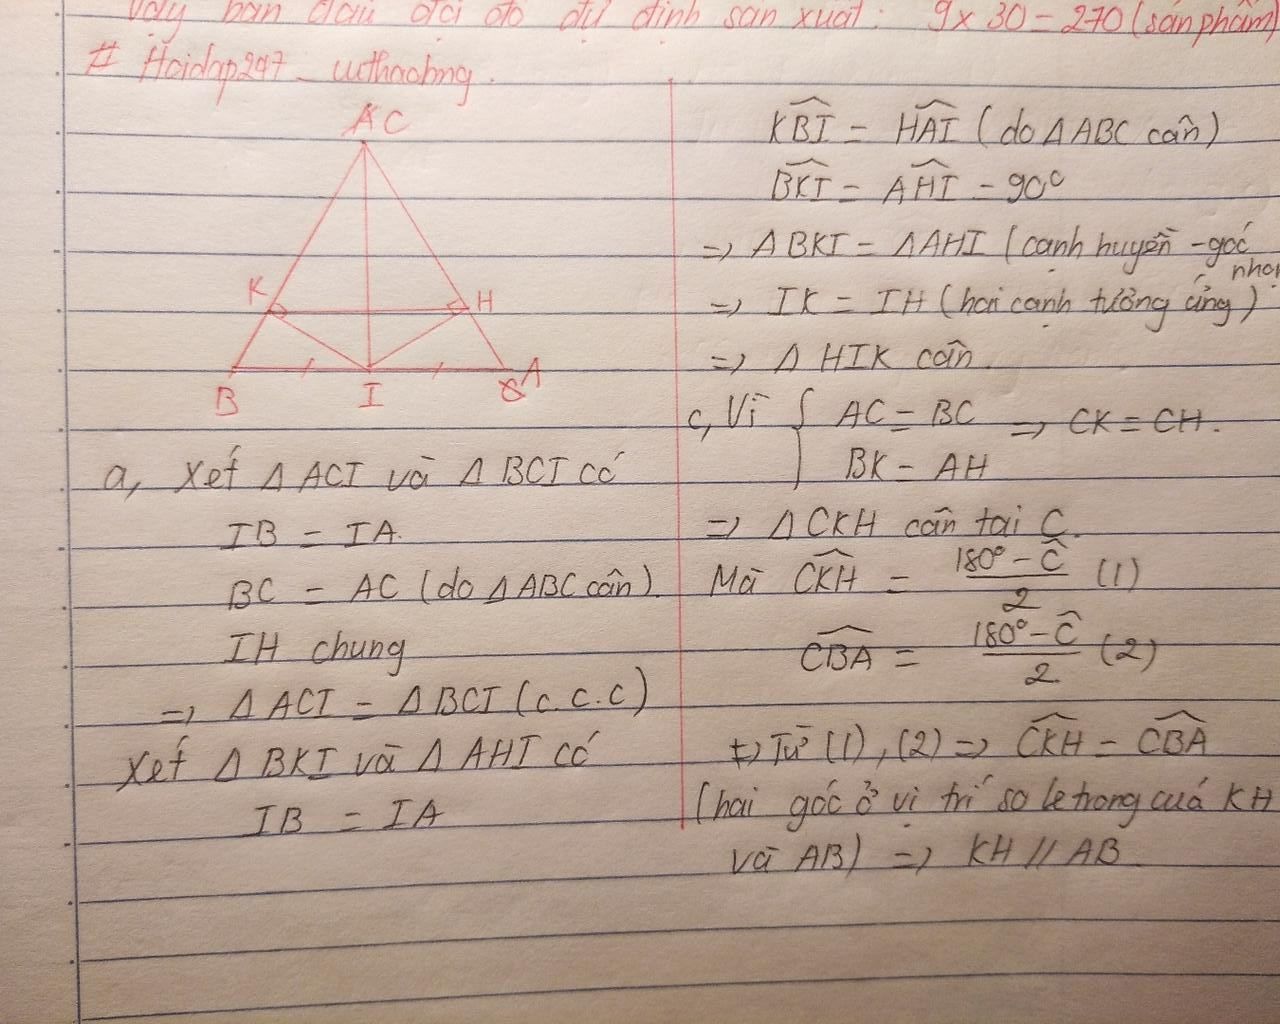 Vậy ban đầu đội đó dự định sản xuất: 9 x 30 = 270 (sản phẩm)
# Hoidap247 _
C
K
H
B
I
A
a, Xét Δ ACI và Δ BCI có
IB = IA.
BC = AC (do Δ ABC cân).
IH chung
=> Δ ACI = Δ BCI (c.c.c)
Xét Δ BKI và Δ AHI có
IB = IA
\widehat{KBI} = \widehat{HAI} (do Δ ABC cân)
\widehat{BKI} = \widehat{AHI} = 90°
=> Δ BKI = Δ AHI (cạnh huyền - góc
nhọn
=> IK = IH (hai cạnh tương ứng)
=> Δ HIK cân.
c, Vì { AC = BC => CK = CH.
BK = AH
=> Δ CKH cân tại C.
Mà \widehat{CKH} = \frac{180° - \widehat{C}}{2} (1)
\widehat{CBA} = \frac{180° - \widehat{C}}{2} (2)
Từ (1), (2) => \widehat{CKH} = \widehat{CBA}
(hai góc ở vị trí so le trong cuả KH
và AB) => KH // AB